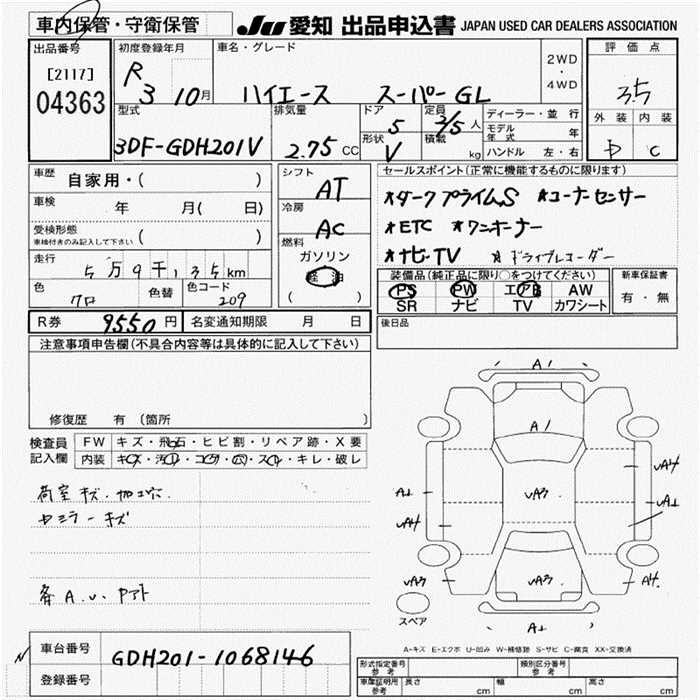 車内保管・守衛保管
JU 愛知 出品申込書 JAPAN USED CAR DEALERS ASSOCIATION
出品番号
[2117]
04363
初度登録年月
R
3 10月
車名・グレード
ハイエース スーパーGL
2WD
・
4WD
評価点
3.5
外装 内装
D C
型式
3DF-GDH201V
排気量
2.75 CC
ドア
5
形状
V
定員
2/5 人
積載
kg
ディーラー・並行
モデル年式 年
ハンドル 左・右
車歴
自家用・( )
車検
年 月( 日)
受検形態
車検付きのみ記入して下さい ( )
走行
5万9千135km
色
クロ
色替
色コード
209
シフト
AT
冷房
AC
燃料
ガソリン
軽油
( )
セールスポイント(正常に機能するものに限ります)
*ダークプライムS *コーナーセンサー
*ETC *ワンオーナー
*ナビ・TV *ドライブレコーダー
装備品(純正品に限り○をつけてください)
PS PW エアB AW
SR ナビ TV カワシート
新車保証書
有・無
R券 9550円 名変通知期限 月 日
後日品
注意事項申告欄(不具合内容等は具体的に記入して下さい)
修復歴 有 (箇所 )
検査員
記入欄
FW キズ・飛石・ヒビ割・リペア跡・X要
内装 キズ・汚れ・コゲ・穴・スレ・キレ・破レ
荷室キズ・
ミラーキズ
A.U.
A1
A1
A1
UA4
UA3
UA4
UA1
UA3
UA3
A4
A1
スペア
A=キズ E=エクボ U=凹み W=補修跡 S=サビ C=腐食 XX=交換済
車台番号
GDH201-1068146
登録番号
形式指定番号
参考
類別区分番号
参考
車庫証明用
参考
長さ cm 幅 cm 高さ cm